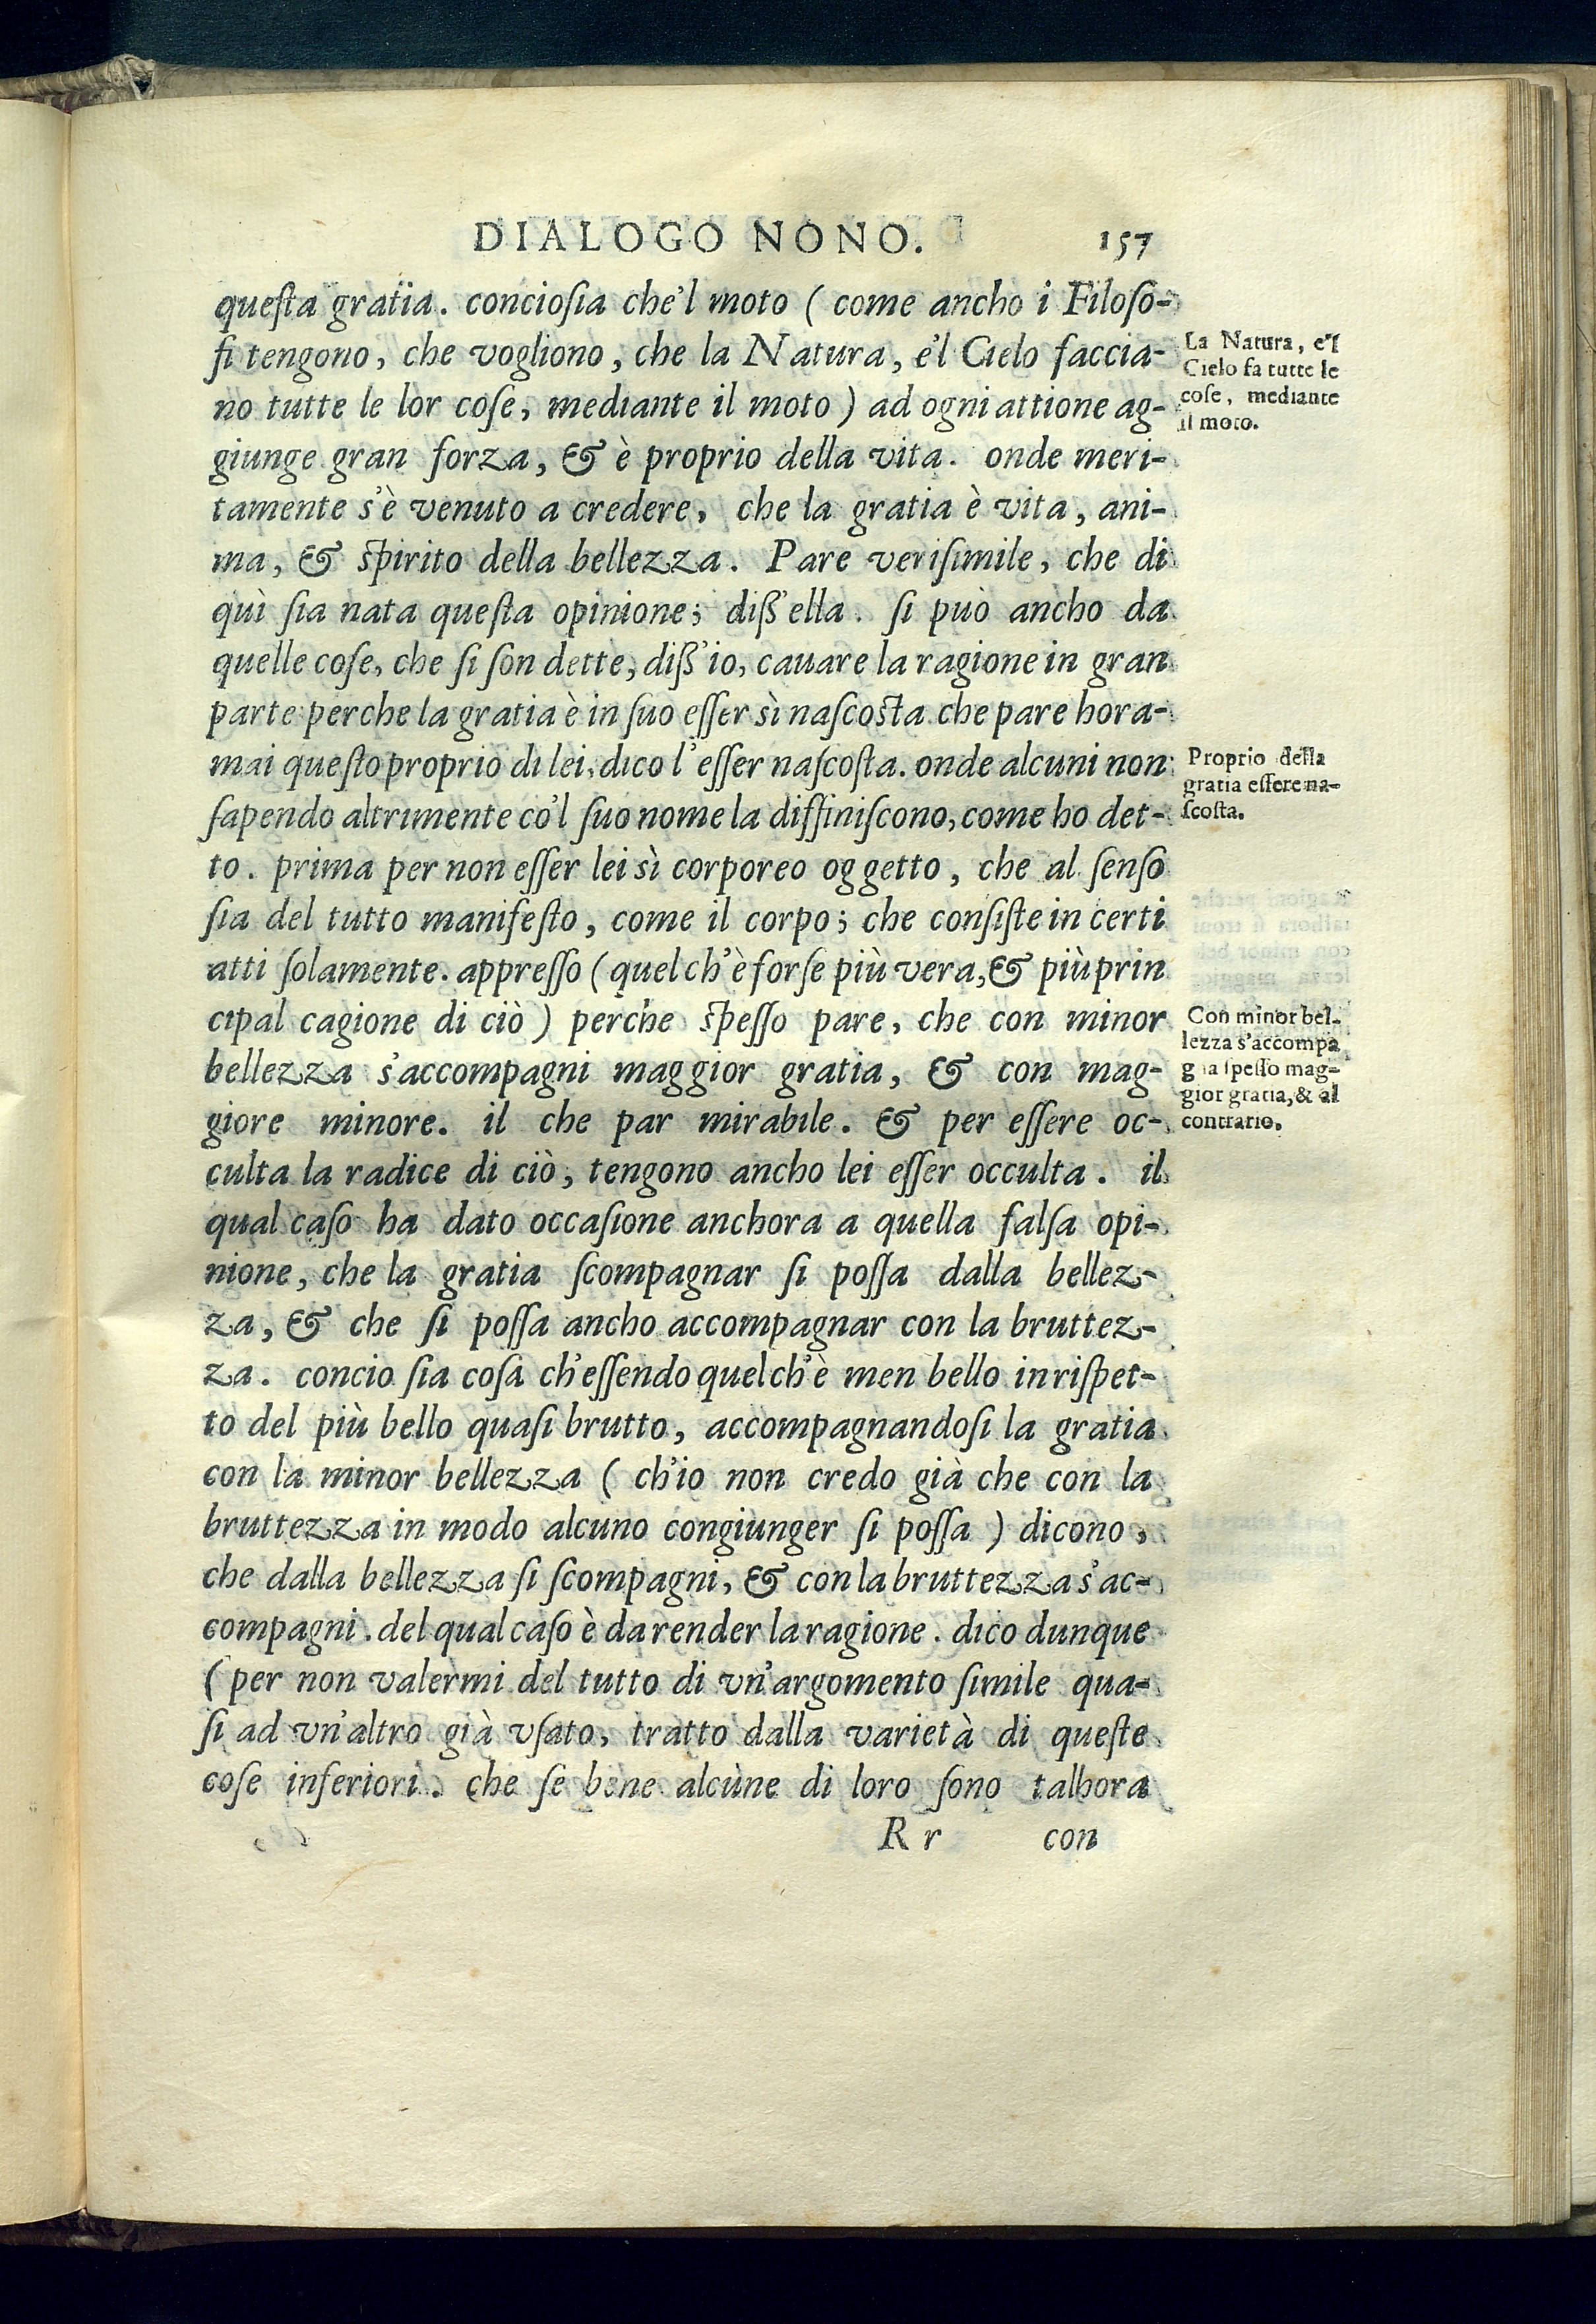 DIALOGO NONO. 157
queſta gratia. concioſia che'l moto ( come ancho i Filoſo-
fi tengono, che vogliono, che la Natura, e'l Cielo faccia-
no tutte le lor coſe, mediante il moto ) ad ogni attione ag-
giunge gran forza, & è proprio della vita. onde meri-
tamente s'è venuto a credere, che la gratia è vita, ani-
ma, & ſpirito della bellezza. Pare veriſimile, che di
quì ſia nata queſta opinione; diſſ'ella. ſi può ancho da
quelle coſe, che ſi ſon dette, diſſ'io, cauare la ragione in gran
parte perche la gratia è in ſuo eſſer sì naſcoſta che pare hora-
mai queſto proprio di lei, dico l'eſſer naſcoſta. onde alcuni non
ſapendo altrimente co'l ſuo nome la diffiniſcono, come ho det-
to. prima per non eſſer lei sì corporeo oggetto, che al ſenſo
ſia del tutto manifeſto, come il corpo; che conſiſte in certi
atti ſolamente. appreſſo ( quel ch'è forſe più vera, & più prin
cipal cagione di ciò ) perche ſpeſſo pare, che con minor
bellezza s'accompagni maggior gratia, & con mag-
giore minore. il che par mirabile. & per eſſere oc-
culta la radice di ciò, tengono ancho lei eſſer occulta. il
qual caſo ha dato occaſione anchora a quella falſa opi-
nione, che la gratia ſcompagnar ſi poſſa dalla bellez-
za, & che ſi poſſa ancho accompagnar con la bruttez-
za. concio ſia coſa ch'eſſendo quel ch'è men bello in riſpet-
to del più bello quaſi brutto, accompagnandoſi la gratia
con la minor bellezza ( ch'io non credo già che con la
bruttezza in modo alcuno congiunger ſi poſſa ) dicono,
che dalla bellezza ſi ſcompagni, & con la bruttezza s'ac-
compagni. del qual caſo è da render la ragione. dico dunque
( per non valermi del tutto di vn'argomento ſimile qua-
ſi ad vn'altro già vſato, tratto dalla varietà di queſte
coſe inferiori. che ſe bene alcune di loro ſono talhora
R r con
La Natura, e'l
Cielo fa tutte le
coſe, mediante
il moto.
Proprio della
gratia eſſere na-
ſcoſta.
Con minor bel-
lezza s'accompa
gna ſpeſſo mag-
gior gratia, & al
contrario.